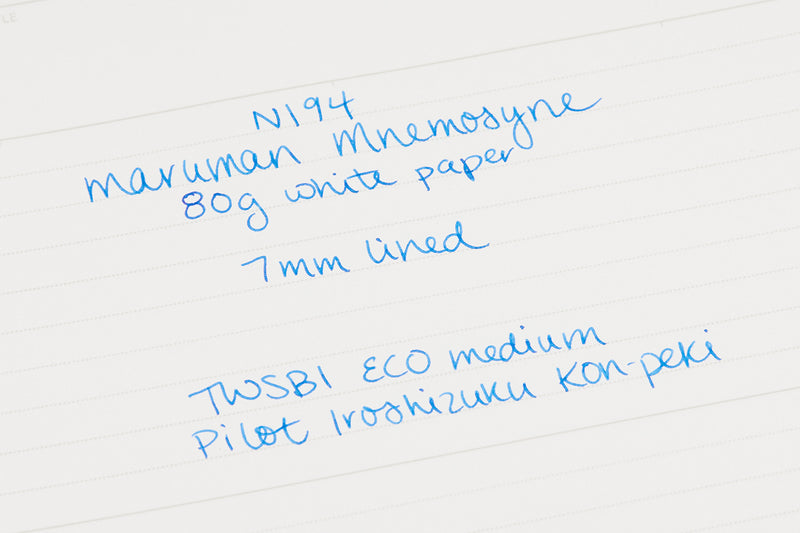 N194
maruman Mnemosyne
80g white paper
7mm lined
TWSBI ECO medium
Pilot Iroshizuku Kon-peki